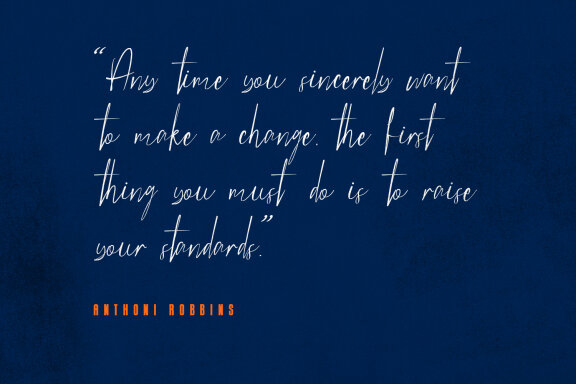 “Any time you sincerely want
to make a change. the first
thing you must do is to raise
your standards.”
ANTHONI ROBBINS